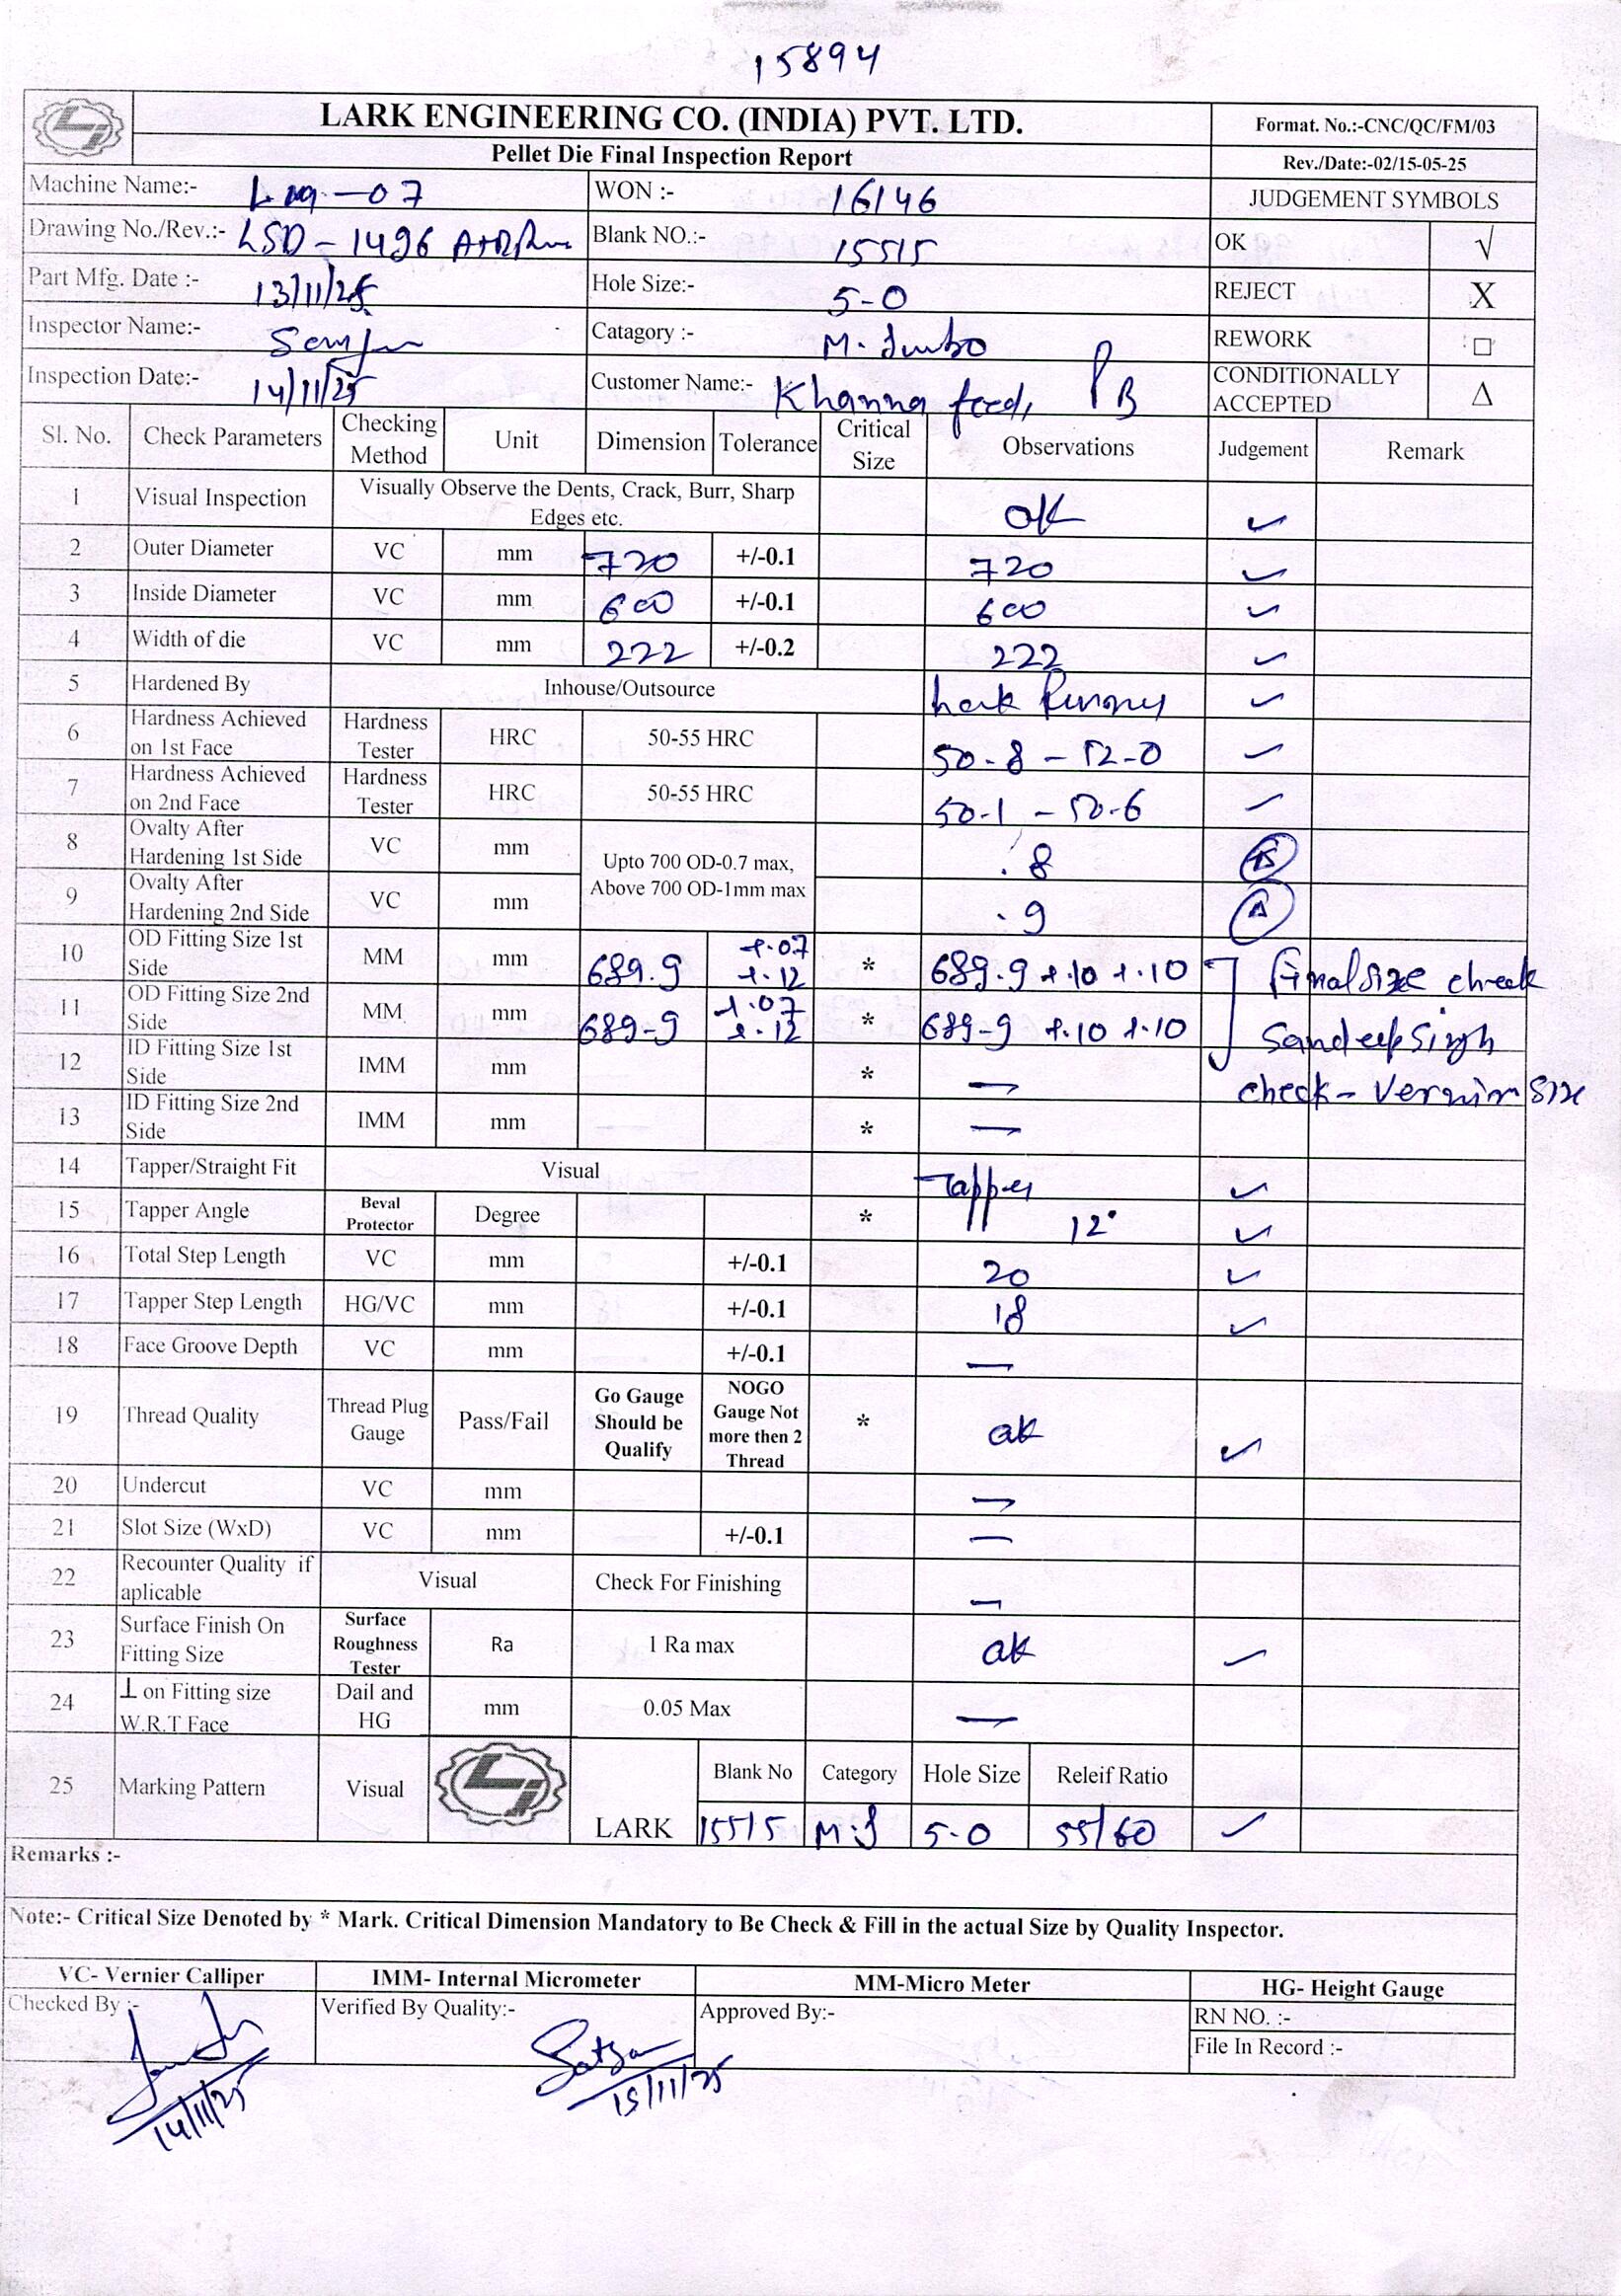 15894
LARK ENGINEERING CO. (INDIA) PVT. LTD.
Format. No.:-CNC/QC/FM/03
Pellet Die Final Inspection Report
Rev./Date:-02/15-05-25
Machine Name:- -07 WON :- 16146 JUDGEMENT SYMBOLS
Drawing No./Rev.:- LSD-1496 Blank NO.:- 15515 OK √
Part Mfg. Date :- 13/11/25 Hole Size:- 5-0 REJECT X
Inspector Name:- Catagory :- M. Jumbo REWORK □
Inspection Date:- 14/11/25 Customer Name:- Khanna feeds PB CONDITIONALLY ACCEPTED Δ
Sl. No. Check Parameters Checking Method Unit Dimension Tolerance Critical Size Observations Judgement Remark
1 Visual Inspection Visually Observe the Dents, Crack, Burr, Sharp Edges etc. ok ✓
2 Outer Diameter VC mm 720 +/-0.1 720 ✓
3 Inside Diameter VC mm 600 +/-0.1 600 ✓
4 Width of die VC mm 222 +/-0.2 222 ✓
5 Hardened By Inhouse/Outsource Lark ✓
6 Hardness Achieved on 1st Face Hardness Tester HRC 50-55 HRC 50-8 - 52-0 ✓
7 Hardness Achieved on 2nd Face Hardness Tester HRC 50-55 HRC 50-1 - 50-6 ✓
8 Ovalty After Hardening 1st Side VC mm Upto 700 OD-0.7 max, Above 700 OD-1mm max .8
9 Ovalty After Hardening 2nd Side VC mm .9 Δ
10 OD Fitting Size 1st Side MM mm 689.9 +.07 +.12 * 689.9 +.10 +.10 Final size check
11 OD Fitting Size 2nd Side MM mm 689-9 +.07 +.12 * 689-9 +.10 +.10 Sandeep Singh
12 ID Fitting Size 1st Side IMM mm * — check- size
13 ID Fitting Size 2nd Side IMM mm * —
14 Tapper/Straight Fit Visual Tapper ✓
15 Tapper Angle Beval Protector Degree * 12° ✓
16 Total Step Length VC mm +/-0.1 20 ✓
17 Tapper Step Length HG/VC mm +/-0.1 18 ✓
18 Face Groove Depth VC mm +/-0.1 —
19 Thread Quality Thread Plug Gauge Pass/Fail Go Gauge Should be Qualify NOGO Gauge Not more then 2 Thread * ok ✓
20 Undercut VC mm —
21 Slot Size (WxD) VC mm +/-0.1 —
22 Recounter Quality if aplicable Visual Check For Finishing —
23 Surface Finish On Fitting Size Surface Roughness Tester Ra 1 Ra max ok ✓
24 ⊥ on Fitting size W.R.T Face Dail and HG mm 0.05 Max —
25 Marking Pattern Visual LARK Blank No Category Hole Size Releif Ratio
15515 M.J 5-0 55/60 ✓
Remarks :-
Note:- Critical Size Denoted by * Mark. Critical Dimension Mandatory to Be Check & Fill in the actual Size by Quality Inspector.
VC- Vernier Calliper IMM- Internal Micrometer MM-Micro Meter HG- Height Gauge
Checked By :- Verified By Quality:- Approved By:- RN NO. :-
File In Record :-
14/11/25 15/11/25